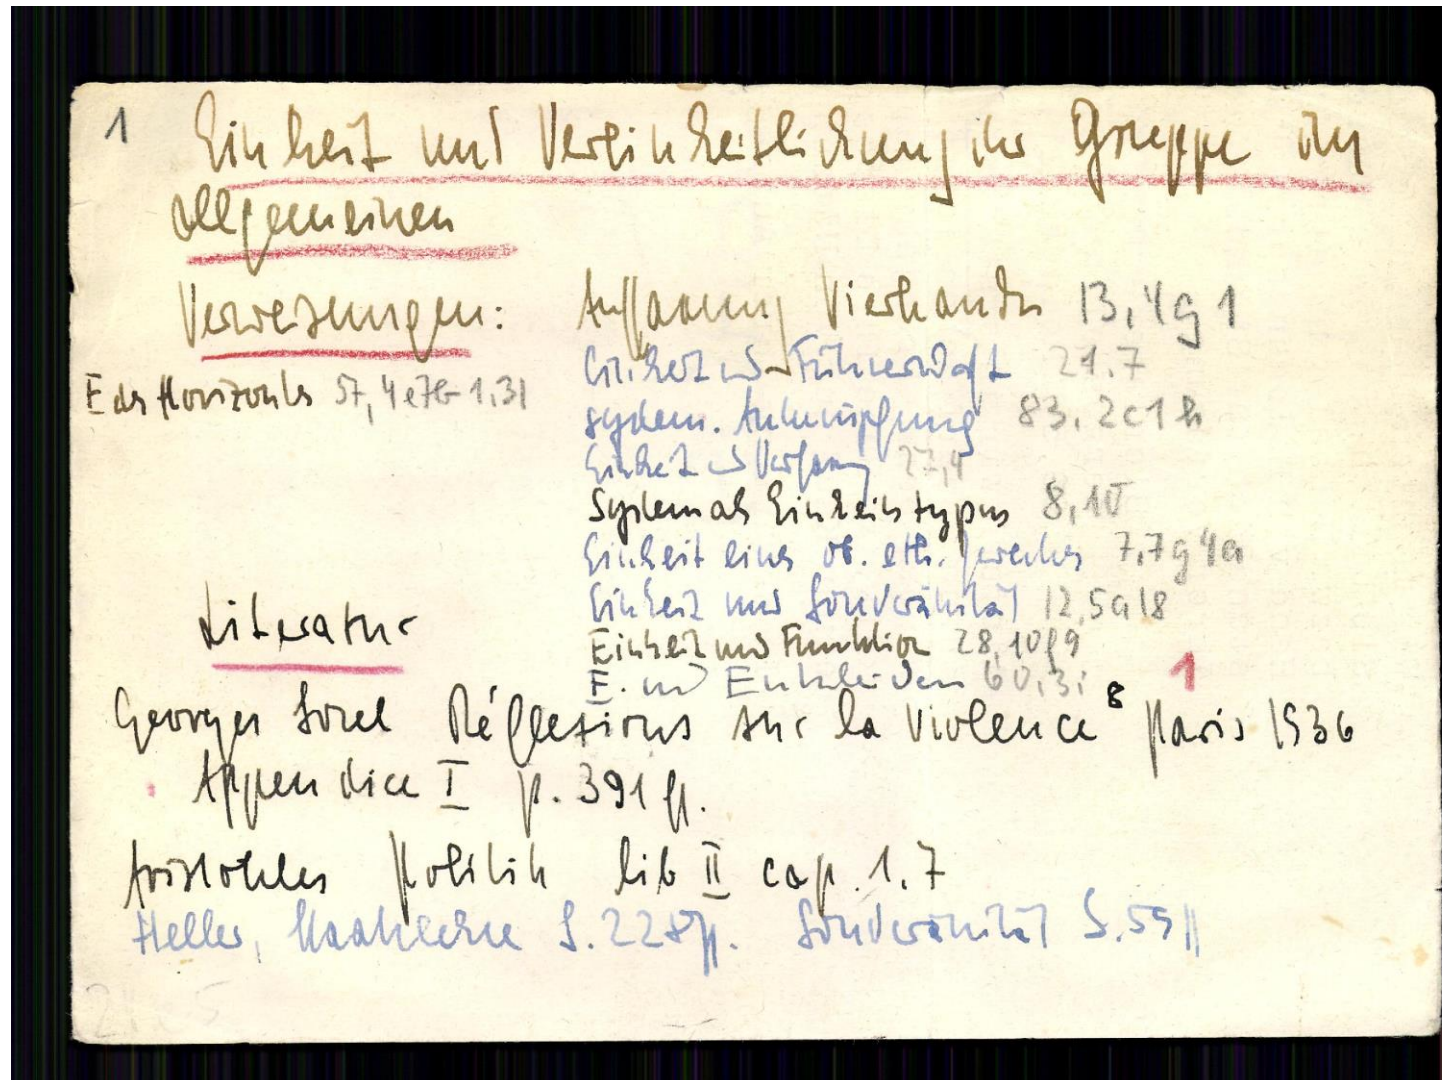 1 Einheit und Vereinheitlichung der Gruppe im
allgemeinen
Verweisungen:
E des Horizontes 57,4e7b-1.31
Auffassung Vierkandts 13,4g1
Einheit und Führerschaft 21.7
system. Anknüpfung 83.2c1h
Einheit und Verfassung 27,4
System als Einheitstypus 8,10
Einheit eines ob. eth. Zweckes 7.7g4a
Einheit und Souveränität 12,5a18
Einheit und Funktion 28,10f9
E. und Entscheidung 60,3i
Literatur
1
Georges Sorel Réflexions sur la Violence 8 Paris 1936
Appendice I p. 391 ff.
Aristoteles Politik lib II cap. 1.7
Heller, Staatslehre S. 228 ff. Souveränität S. 59 ff